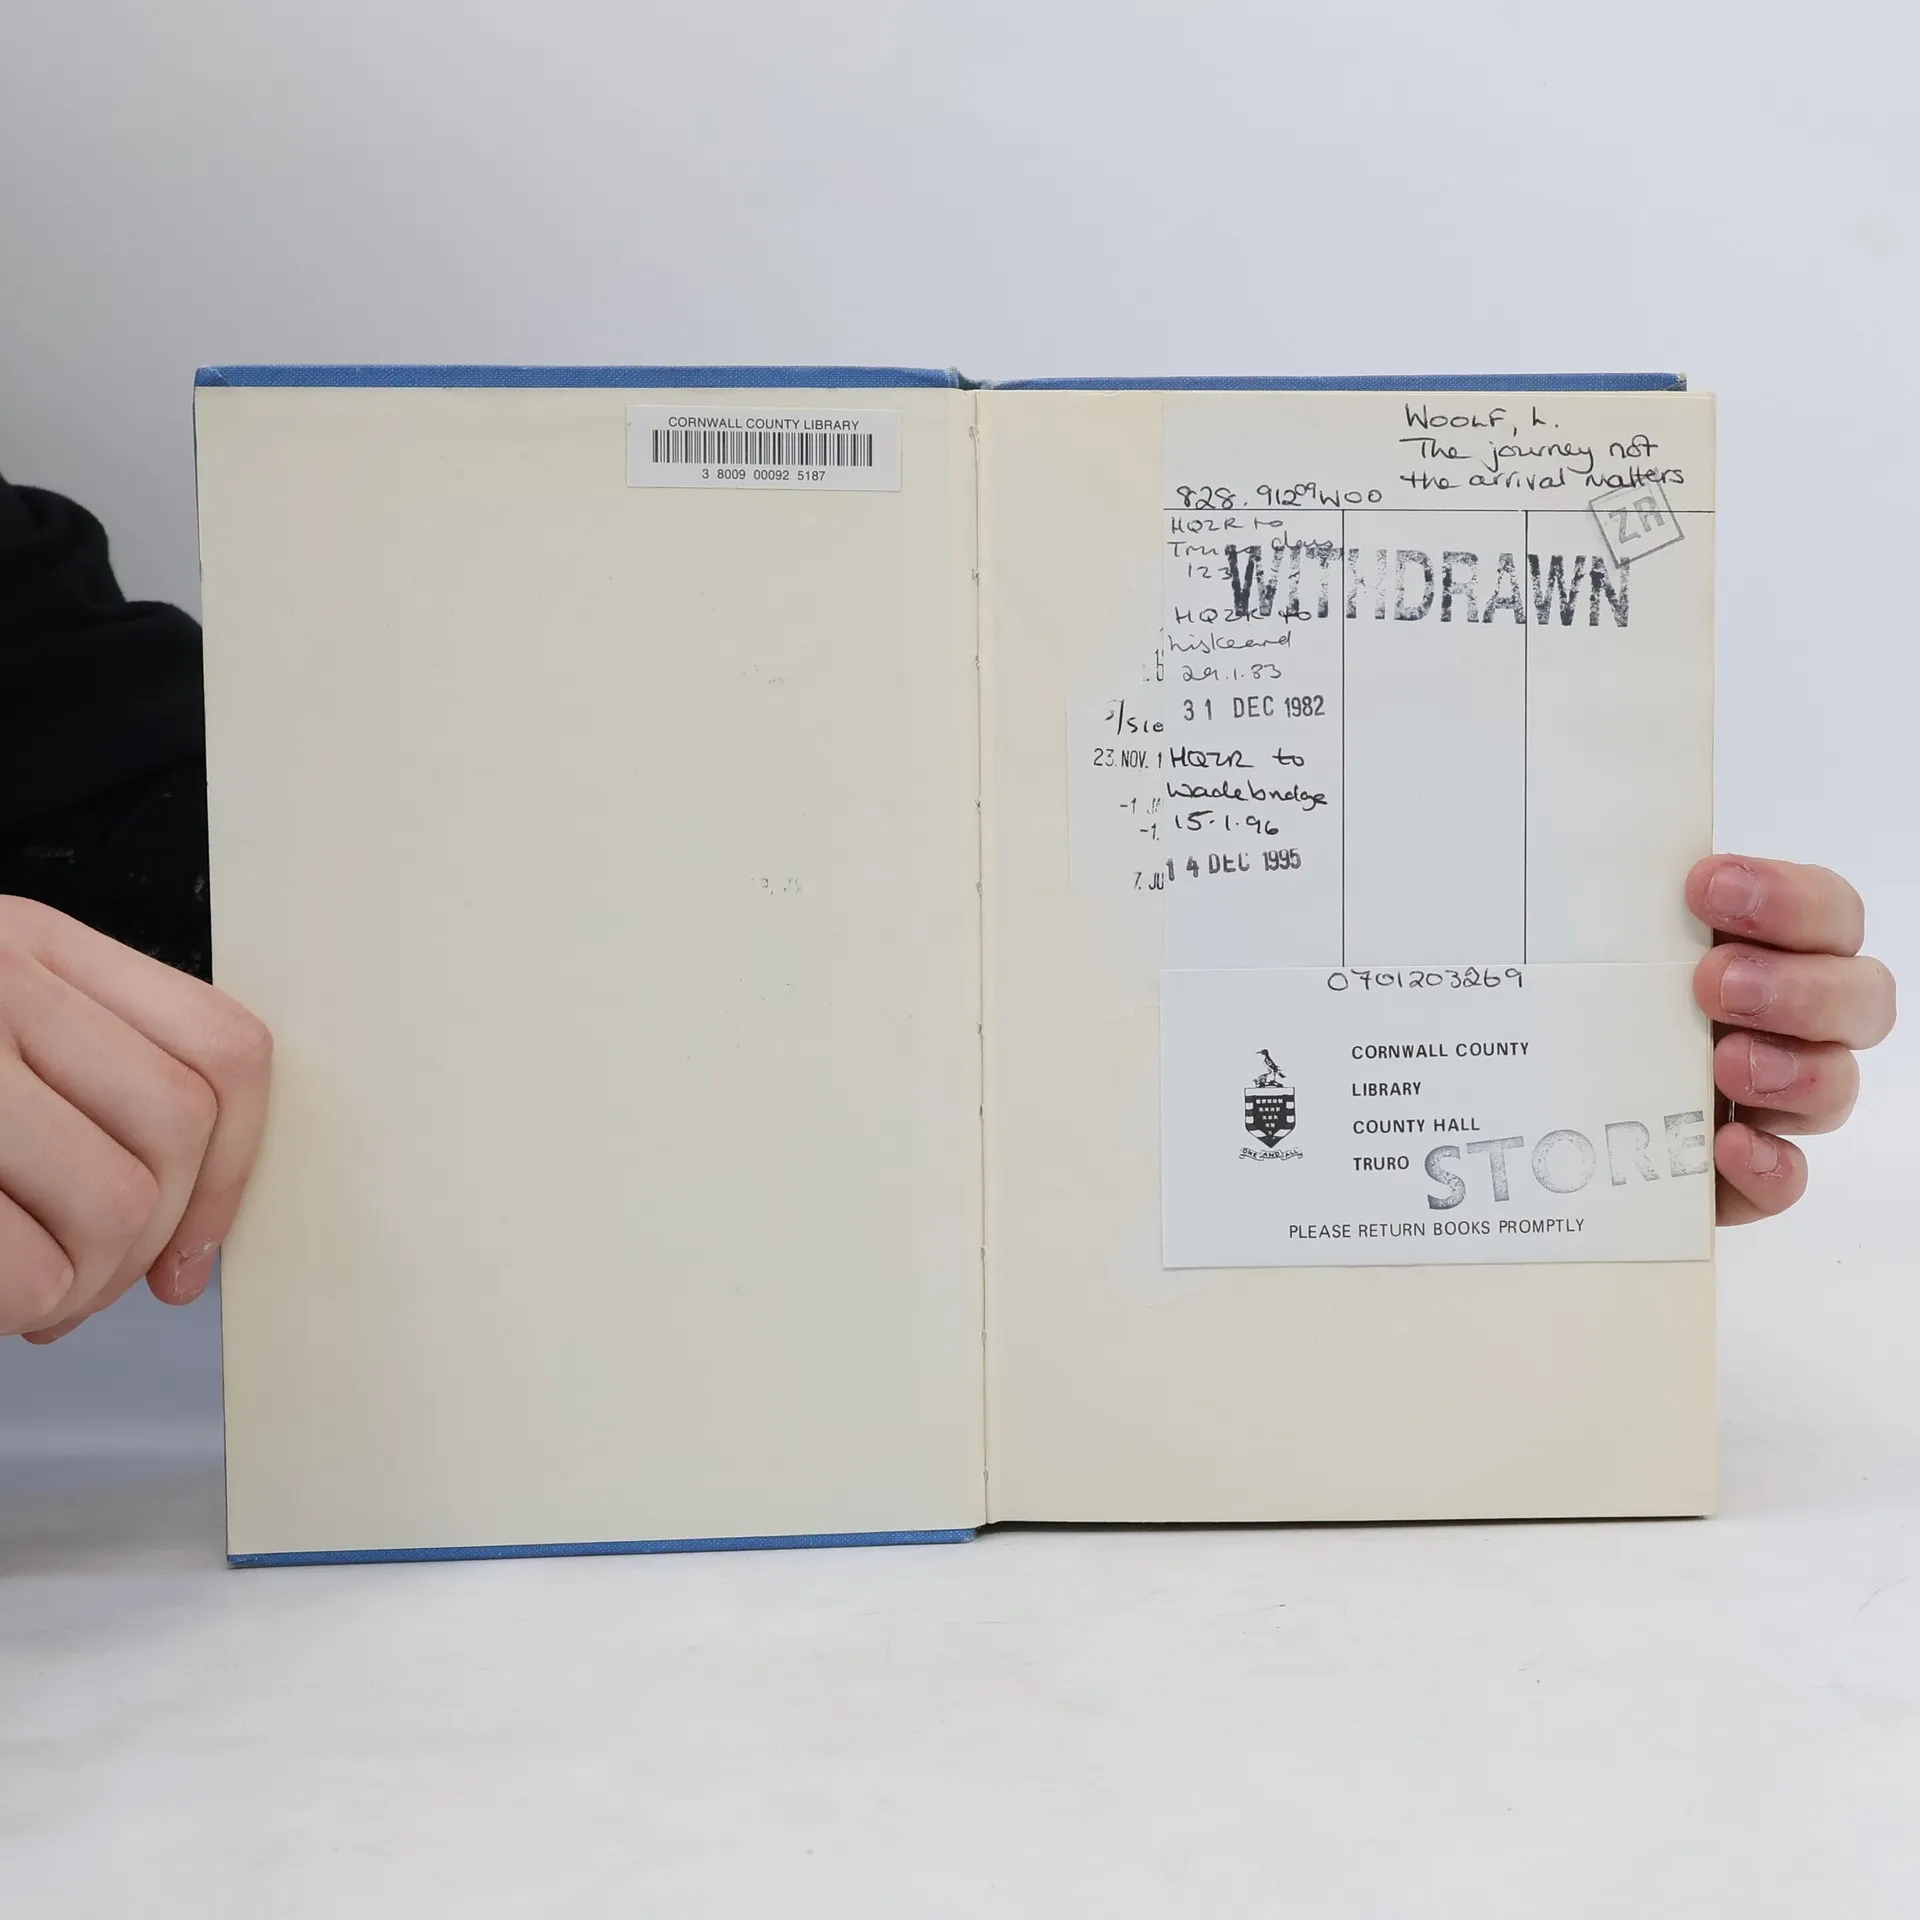 CORNWALL COUNTY LIBRARY
3 8009 00092 5187
WOOLF, L.
The journey not
the arrival matters
828.91209WOO
ZR
HQZR to
WITHDRAWN
123
HQZR to
Liskeard
29.1.83
31 DEC 1982
23. NOV. 1
HQZR to
Wadebridge
-1
-1.
15.1.96
7. JU
14 DEC 1995
0701203269
CORNWALL COUNTY
LIBRARY
COUNTY HALL
TRURO
STORE
ONE AND ALL
PLEASE RETURN BOOKS PROMPTLY